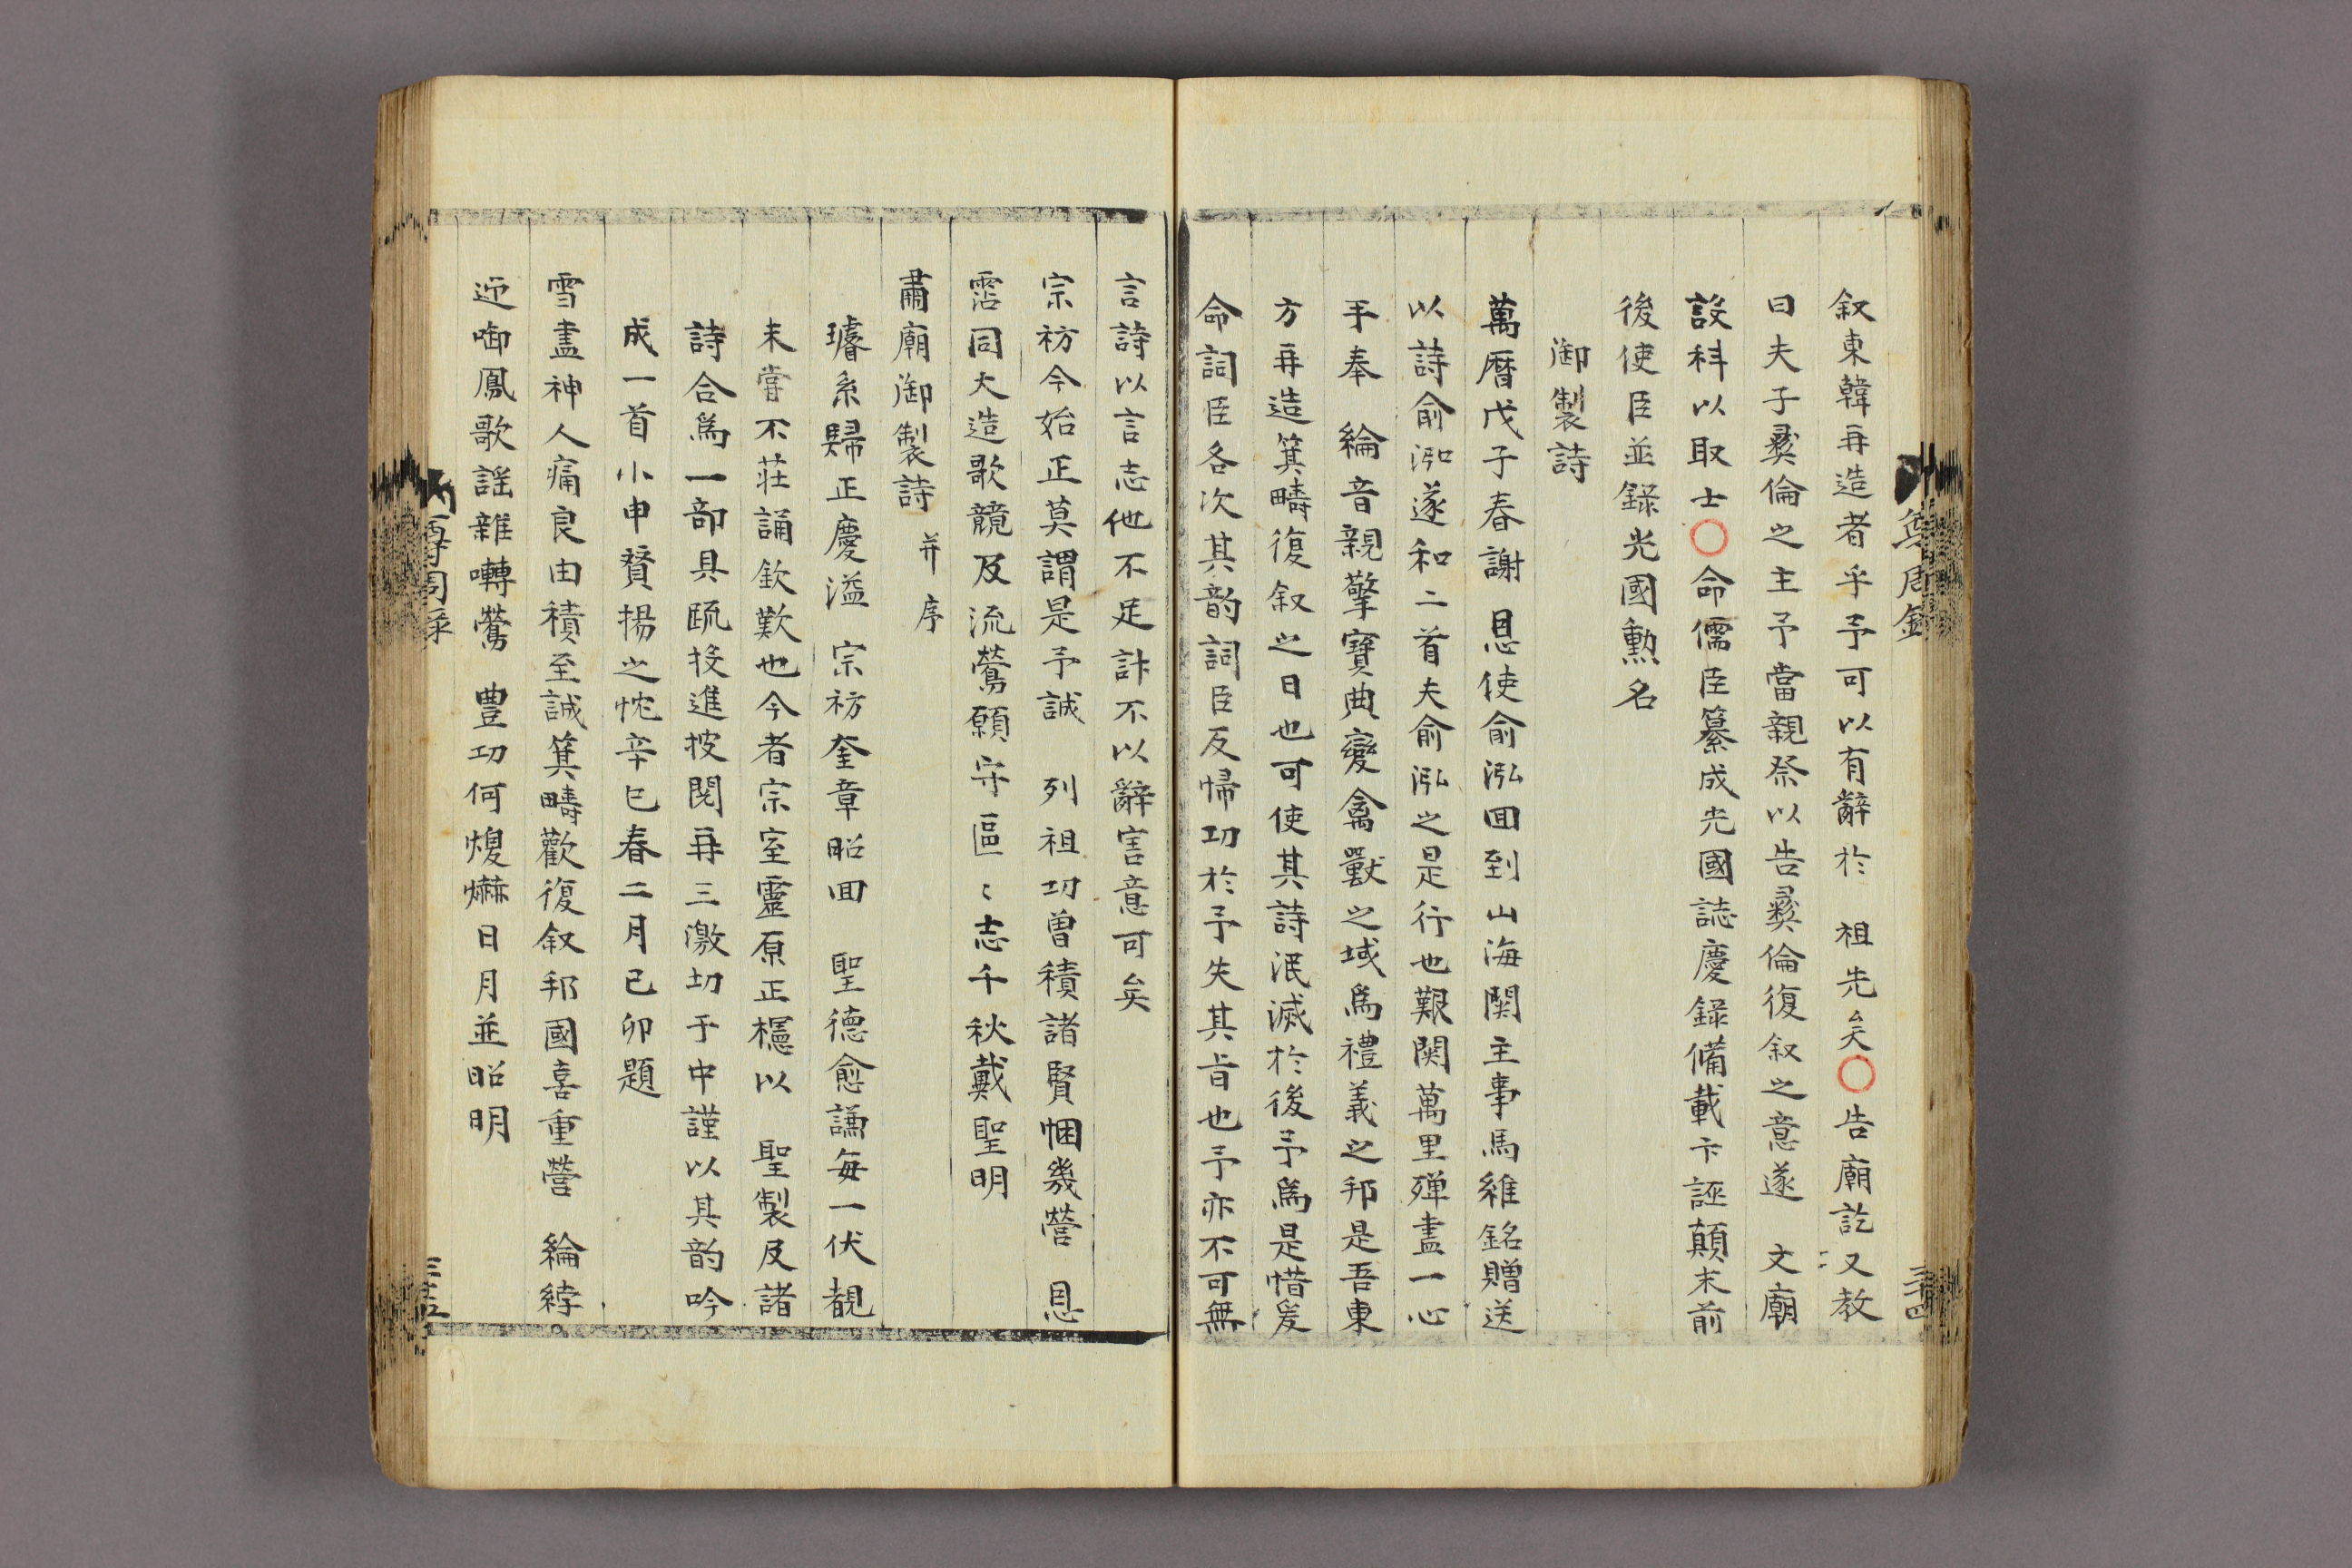 叙東韓再造者乎予可以有辭於 祖先矣○告廟訖又教
曰夫子彛倫之主予當親祭以告彛倫復叙之意遂 文廟
設科以取士○命儒臣纂成光國誌慶錄備載卞誣顛末前
後使臣並錄光國勲名
御製詩
萬曆戊子春謝 恩使俞泓回到山海関主事馬維銘贈送
以詩俞泓遂和二首夫俞泓之是行也艱関萬里殫盡一心
手奉 綸音親擎寶典變禽獸之域爲禮義之邦是吾東
方再造箕疇復叙之日也可使其詩泯滅於後予爲是惜爰
命詞臣各次其韵詞臣反帰功於予失其旨也予亦不可無
言詩以言志他不足計不以辭害意可矣
宗祊今始正莫謂是予誠 列祖功曾積諸賢悃幾營 恩
霑同大造歌競及流鶯願守區〻志千秋戴聖明
肅廟御製詩 并序
璿系歸正慶溢 宗祊奎章昭回 聖德愈謙每一伏覩
未嘗不莊誦欽歎也今者宗室靈原正櫶以 聖製及諸
詩合爲一部具疏投進披閱再三激切于中謹以其韵吟
成一首小申賛揚之忱辛巳春二月己卯題
雪盡神人痛良由積至誠箕疇歡復叙邦國喜重營 綸綍
迎啣鳳歌謠雜囀鶯 豊功何熀爀日月並昭明
尊周錄
三十四
尊周录
三十五